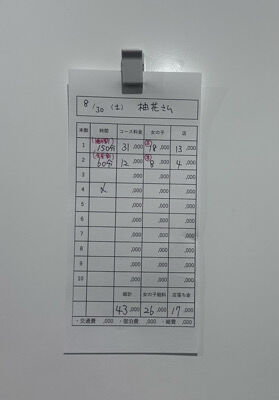 8/30 (土) 柚花さん
本数 時間 コース料金 女の子 店
1 150分 31,000 18,000 13,000
2 60分 12,000 8,000 4,000
3 ,000 ,000 ,000
4 〆 ,000 ,000 ,000
5 ,000 ,000 ,000
6 ,000 ,000 ,000
7 ,000 ,000 ,000
8 ,000 ,000 ,000
9 ,000 ,000 ,000
10 ,000 ,000 ,000
総計 女の子給料 店落ち金
43,000 26,000 17,000
・交通費 ,000 ・宿泊費 ,000 ・雑費 ,000